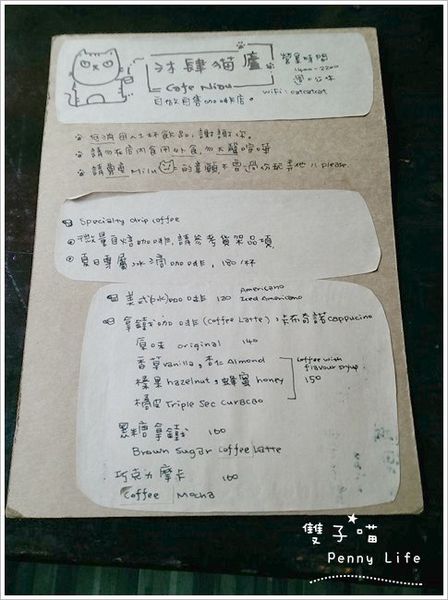 沐肆貓廬
Cafe Niau
自做自售咖啡店。
營業時間
1400~2200
週一公休
WiFi: catcatcat
低消每人1杯飲品，謝謝你。
請勿在店內食用外食，勿大聲喧嘩
請尊重 Milu 的意願不要過份玩弄他!! please.
Specialty drip coffee
微量自焙咖啡，請參考貨架品項
夏日專屬冰滴咖啡，180/杯
美式(冰)咖啡 120 Americano
Iced Americano
拿鐵咖啡(Coffee Latte)，卡布奇諾 Cappucino
原味 original 140
香草 vanilla，杏仁 Almond
榛果 hazelnut，蜂蜜 honey
橘皮 Triple Sec Curacao
Coffee with
flavour syrup
150
黑糖拿鐵 160
Brown Sugar Coffee Latte
巧克力摩卡 160
Coffee Mocha
雙子喵
Penny Life